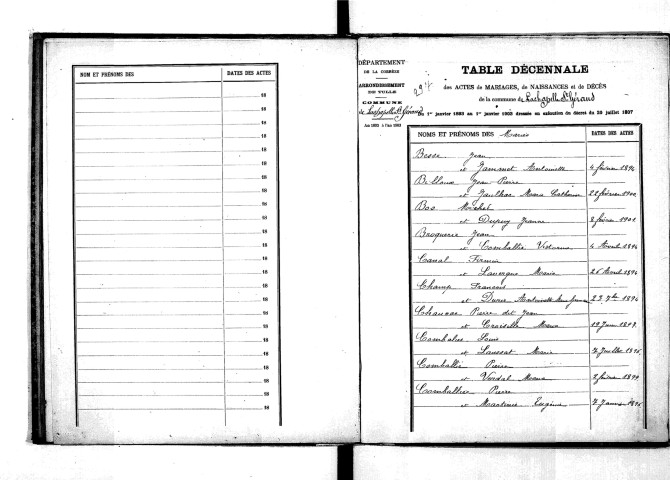 NOM ET PRÉNOMS DES DATES DES ACTES
18
18
18
18
18
18
18
18
18
18
18
18
18
18
18
18
18
18
18
18
DÉPARTEMENT
DE LA CORRÈZE
ARRONDISSEMENT
DE TULLE
COMMUNE
de Lachapelle St Géraud
An 1893 à l'an 1903
TABLE DÉCENNALE
des ACTES de MARIAGES, de NAISSANCES et de DÉCÈS
de la commune de Lachapelle St Géraud
Du 1er janvier 1893 au 1er janvier 1903 dressée en exécution du décret du 20 juillet 1807
NOMS ET PRÉNOMS DES Mariés DATES DES ACTES
Besse Jean
et Jammet Antoinette 4 février 1894
Jean Pierre
et Marie Catherine 22 février 1900
Bos Michel
et Dupuy Jeanne 8 février 1901
Broquerie Jean
et Comballie 4 Avril 1894
Canal Firmin
et Lavergne Maria 26 Avril 1894
Champ François
et Antoinette 23 7bre 1894
Pierre dit Jean
et Croiselle Maria
Louis
et Laussat Marie 7 Juillet
Comballie Pierre
et Verdal Maria 2 février 1899
Comballie Pierre
et Eugénie 7 Janvier